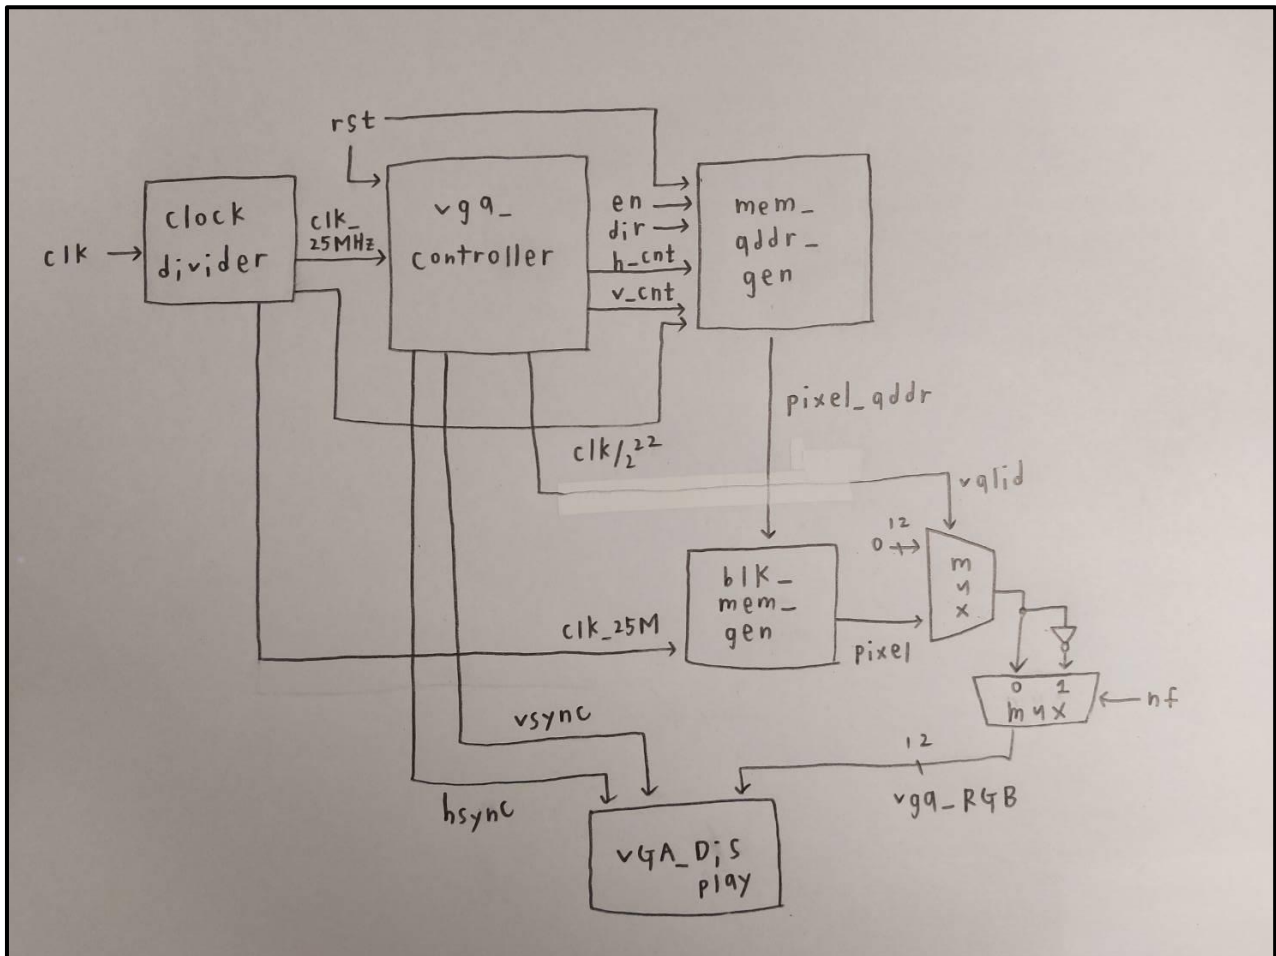 rst
clock
divider
clk
clk_
25MHz
vga_
controller
en
dir
h_cnt
v_cnt
mem_
addr_
gen
clk/2^22
pixel_addr
valid
12
0
mux
blk_
mem_
gen
clk_25M
pixel
0 1
mux
nf
vsync
hsync
12
vga_RGB
VGA_Dis
play